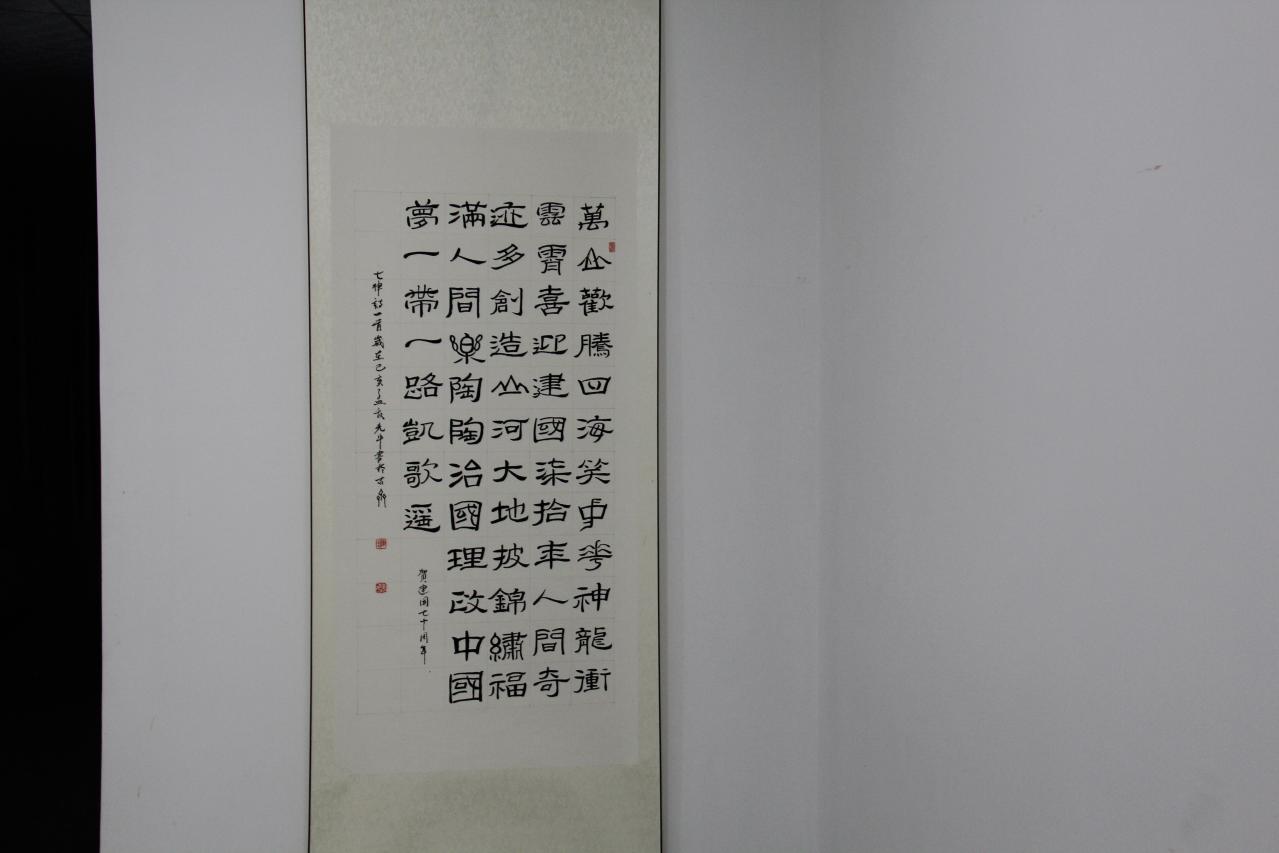 萬山歡騰四海笑中華神龍衝
雲霄喜迎建國柒拾年人間奇
迹多創造山河大地披錦繡福
滿人間樂陶陶治國理政中國
夢一帶一路凱歌遥
賀建國七十周年
七律詩一首歲在己亥孟夏光斗書於京